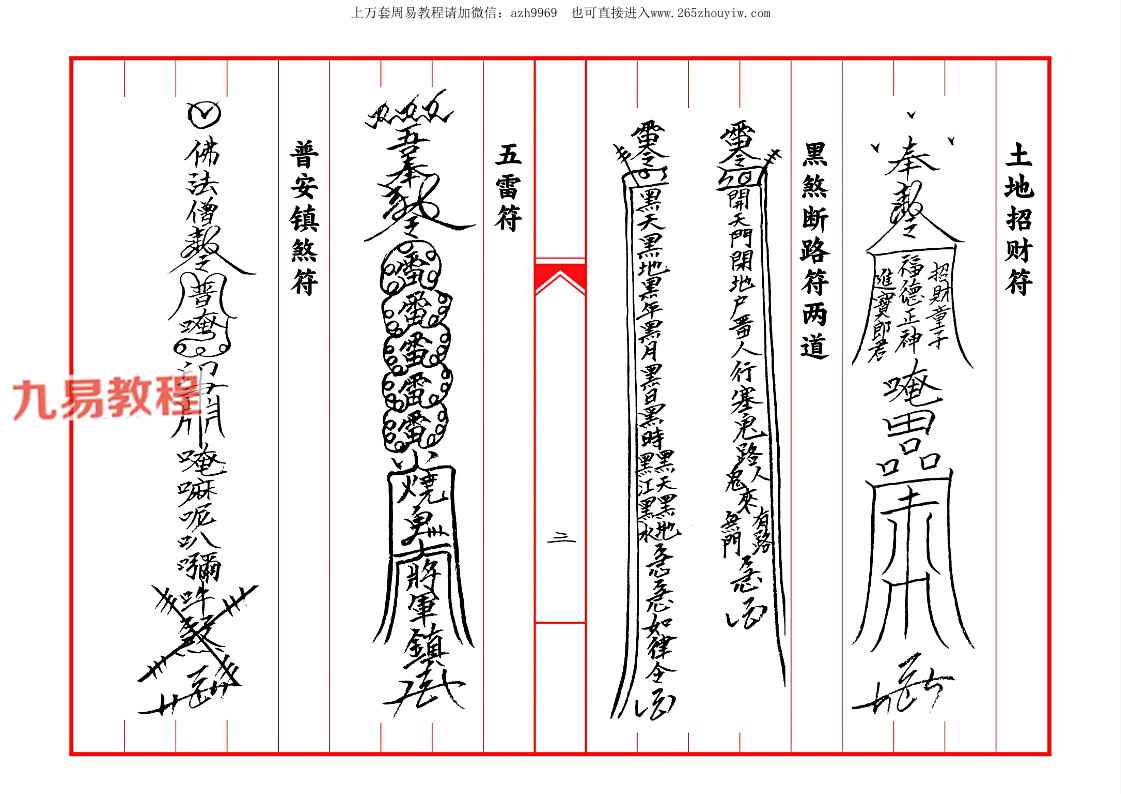 上万套周易教程请加微信：azh9969 也可直接进入www.265zhouyiw.com
土地招财符
奉敕令
招財童子
福德正神
進寶郎君
唵
黑煞断路符两道
開天門閉地户
人行塞鬼路
人來有路
鬼來無門
急
黑天黑地黑年黑月黑日黑時
黑天黑地
黑江黑水
急急如律令
二
五雷符
吾奉
令
雷
雷
雷
雷
雷
火燒鬼
大將軍鎮
普安镇煞符
佛法僧敕令
普唵
印
唵嘛呢叭𡄣吽
煞
九易教程